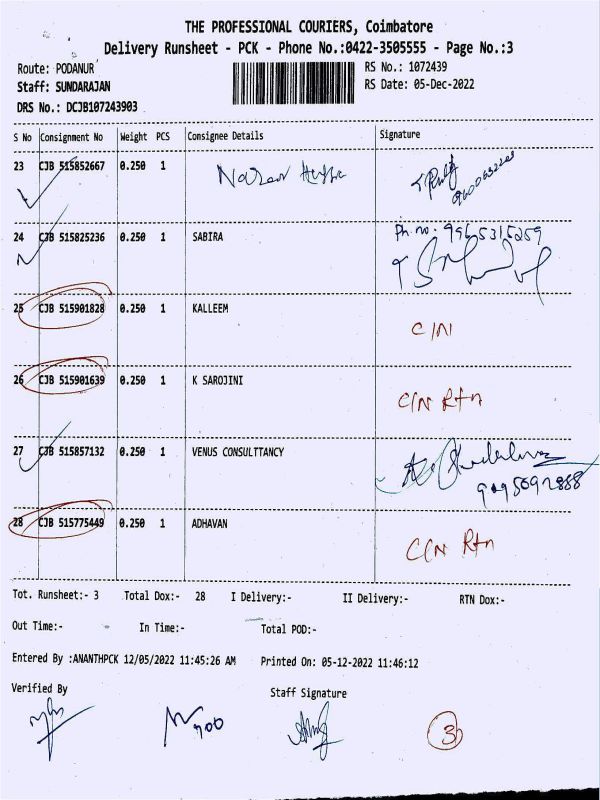 THE PROFESSIONAL COURIERS, Coimbatore
Delivery Runsheet - PCK - Phone No.:0422-3505555 - Page No.:3
Route: PODANUR
RS No.: 1072439
Staff: SUNDARAJAN
RS Date: 05-Dec-2022
DRS No.: DCJB107243903
S No Consignment No Weight PCS Consignee Details Signature
23 CJB 515852667 0.250 1
Ph. no: 9965315259
24 CJB 515825236 0.250 1 SABIRA
25 CJB 515901828 0.250 1 KALLEEM
C/N
26 CJB 515901639 0.250 1 K SAROJINI
C/N Rtn
27 CJB 515857132 0.250 1 VENUS CONSULTTANCY
28 CJB 515775449 0.250 1 ADHAVAN
C/N Rtn
Tot. Runsheet:- 3 Total Dox:- 28 I Delivery:- II Delivery:- RTN Dox:-
Out Time:- In Time:- Total POD:-
Entered By :ANANTHPCK 12/05/2022 11:45:26 AM Printed On: 05-12-2022 11:46:12
Verified By Staff Signature
3